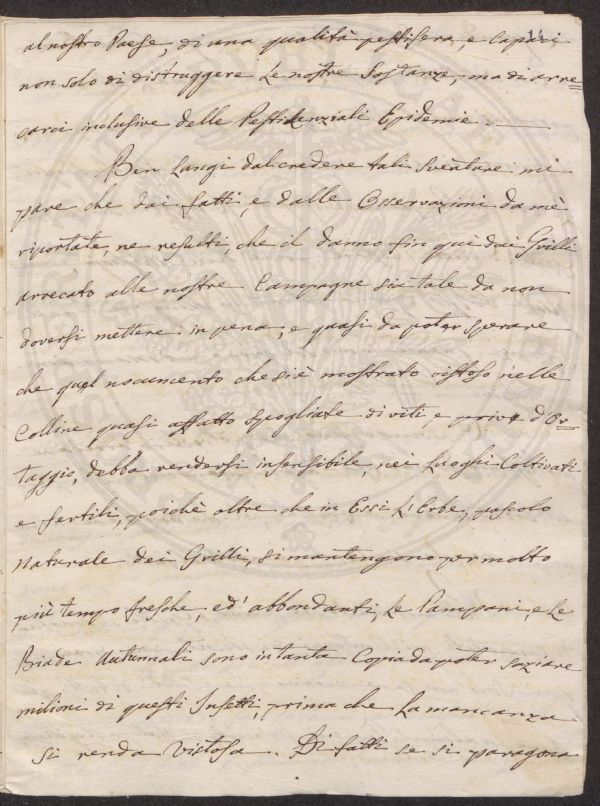 14
al nostro Paese, di una qualità pestifera, e capaci
non solo di distruggere le nostre Sostanze, ma di arre=
carci inclusive delle Pestilenziali Epidemie.
Ben lungi dal credere tali sventure mi
pare che dai fatti, e dalle Osservazioni da mè
riportate, ne resulti, che il danno fin quì dai Grilli
arrecato alle nostre Campagne sia tale da non
doversi mettere in pena, e quasi da poter sperare
che quel nocumento che si è mostrato vistoso nelle
Colline quasi affatto spogliate di viti e prive d'Or=
taggio, debba rendersi insensibile, nei Luoghi Coltivati
e fertili, poichè oltre che in Essi L'Erbe, pascolo
Naturale dei Grilli, si mantengono per molto
più tempo fresche, ed' abbondanti, le Pampani, e le
Biade Autunnali sono in tanta Copia da poter saziare
milioni di questi Insetti, prima che la mancanza
si renda Vistosa. Di fatti se si paragona